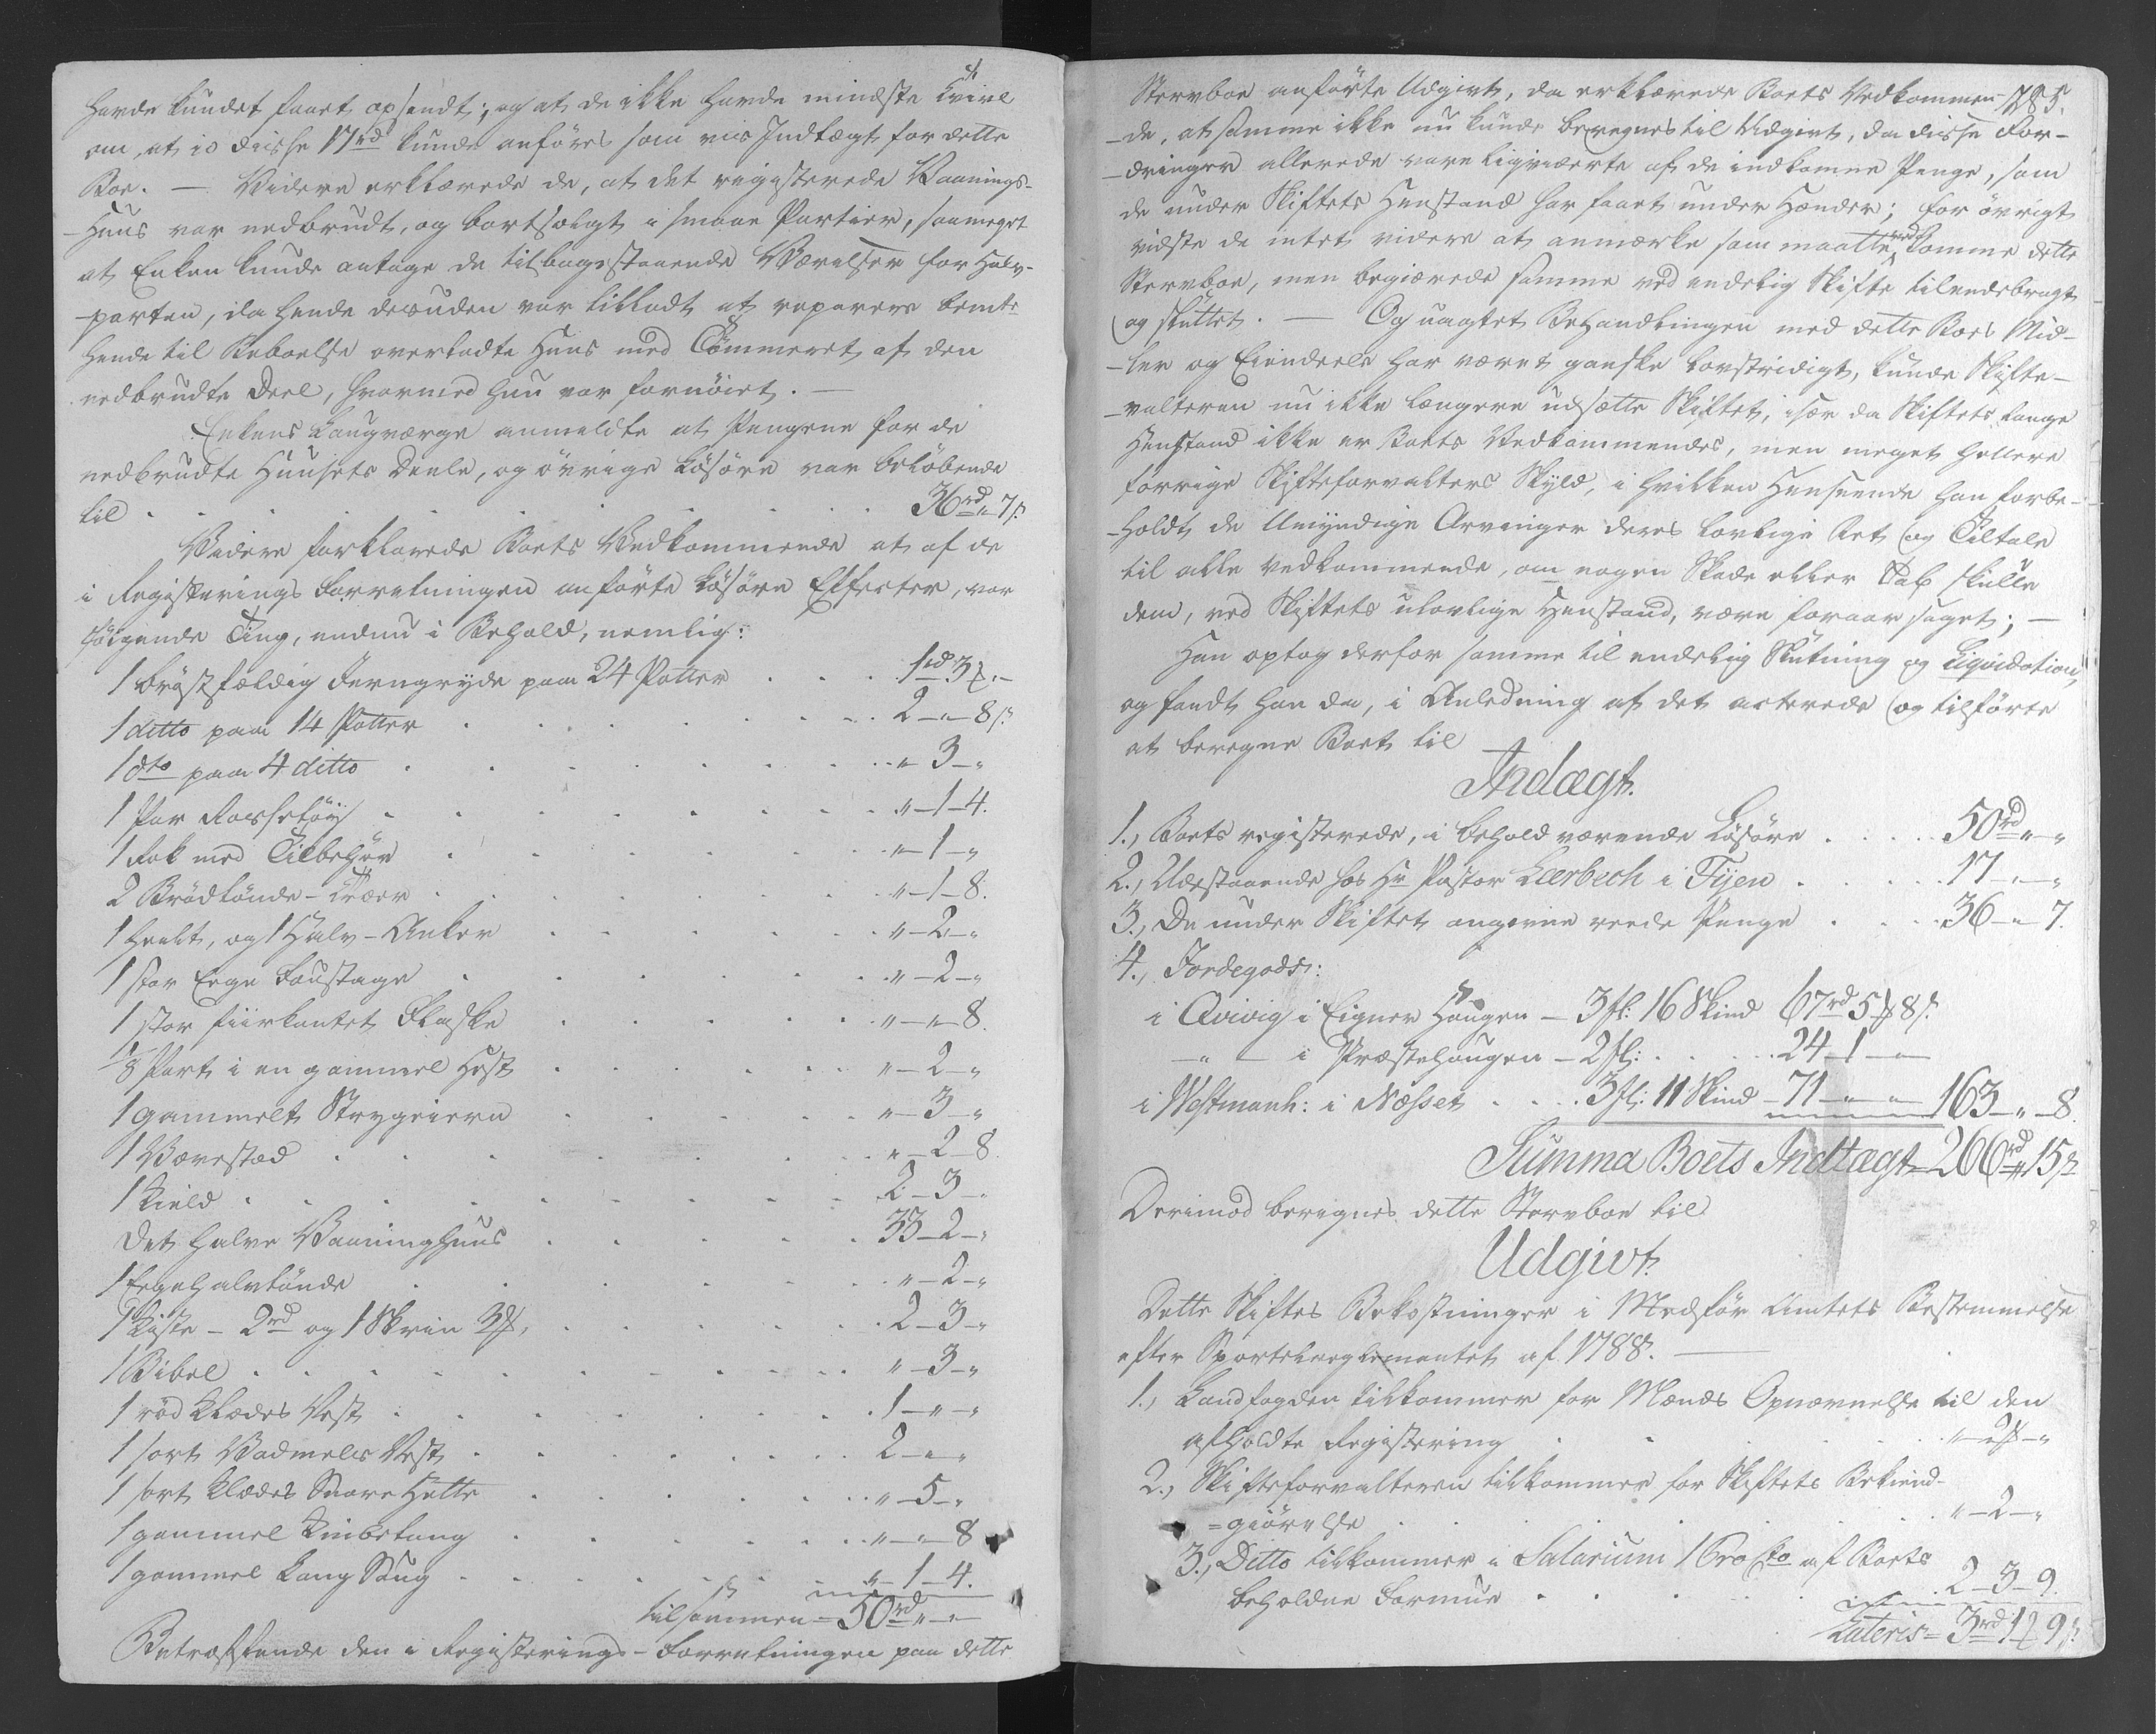 havde kundet faaet opsendt; og at de ikke havde mindste Tvivl
om, at jo disse 17 rd kunde anføres som vis Indtægt for dette
Boe. — Videre erklærede de, at det registerede Vaanings-
-Huus var nedbrudt, og bortsolgt i smaae Partier, saameget
at Enken kunde antage de tilbagestaaende Værelser for Halv-
-parten, da hende desuden var tilladt at reparere bemte
hende til Beboelse overladte Huus med Tømmeret af den
nedbrudte Deel, hvormed hun var fornøiet. —
Enkens Laugværge anmeldte at Pengene for de
nedbrudte Huusets Deele, og øvrige Løsøre var beløbende
til . . . . . . . 36 rd „ 7 s
Videre forklarede Boets Vedkommende at af de
i Registerings Forretningen anførte Løsøre Effecter, var
følgende Ting, endnu i Behold, nemlig:
1 brøstfældig Jerngryde paa 24 Potter . . . 1 rd 3 „ -
1 ditto paa 14 Potter . . . 2 - „ - 8 s
1 dto paa 4 ditto . . . „ - 3 - „
1 Par . . . „ - 1 - 4.
1 Rok med Tilbehør . . . „ - 1 - „
2 Brødtønde- . . . „ - 1 - 8.
1 Heelt, og 1 Halv-Anker . . . „ - 2 - „
1 stor Eege Foustage . . . „ - 2 - „
1 stor fiirkantet Flaske . . . „ - „ - 8.
1/8 Part i en gammel Hest . . . „ - 2 - „
1 gammelt Strygeiern . . . „ - 3 - „
1 Vævestad . . . „ - 2 - 8
1 Kield . . . 2 - 3 - „
Det halve Vaaninghuus . . . 33 - 2 - „
1 Eegehalvtønde . . . „ - 2 - „
1 Kiste - 2 rd og 1 Skrin 3 . . . 2 - 3 - „
1 Bibel . . . „ - 3 - „
1 rød Klædes Vest . . . 1 - „ - „
1 sort Vadmels Vest . . . 2 - „ - „
1 sort Klædes Hætte . . . „ - 5 - „
1 gammel Knibetang . . . „ - „ - 8
1 gammel Lang Saug . . . „ - 1 - 4.
tilsammen = 50 rd „ - „
Betræffende den i Registerings-Forretningen paa dette
785.
Stervboe anførte Udgivt, da erklærede Boets Vedkommen-
-de, at samme ikke nu kunde beregnes til Udgivt, da disse For-
-dringer allerede vare ligviderte af de indkomne Penge, som
de under Skiftets Henstand har faaet under Hænder; for øvrigt
vidste de intet videre at anmærke som maatte vedkomme dette
Stervboe, men begiærede samme ved endelig Skifte tilendebragt
og sluttet. — Og uagtet Behandlingen med dette Boes Mid-
-ler og Eiendeele har været ganske lovstridigt, kunde Skifte-
-valteren nu ikke længere udsætte Skiftet, især da Skiftets lange
Henstand ikke er Boets Vedkommendes, men meget hellere
forrige Skifteforvalters Skyld, i hvilken Henseende han forbe-
-holdt de Umyndige Arvinger deres lovlige Ret og Tiltale
til alle Vedkommende, om nogen Skade eller Tab skulle
dem, ved Skiftets ulovlige Henstand, være foraarsaget; —
Han optog derfor samme til endelig Slutning og Liqvidation,
og fandt han da, i Anledning af det acterede og tilførte
at beregne Boet til
Indægt.
1., Boets registerede, i behold værende Løsøre . . . 50 rd „ - „
2., Udestaaende hos Hr Pastor Lærbech i Fijen . . . 17 - „ - „
3., De under Skiftet angivne reede Penge . . . 36 - „ - 7.
4., Jordegods:
i Qvivig i Eigner Haugen - 3 fl: 16 Skind 67 rd 5 8 s
- „ - i Præstehaugen - 2 fl: . . . 24 - 1 - „
i Westmanh: i Næsset . . . 3 fl: 11 Skind - 71 - „ - „ 163 - „ - 8.
Summa Boets Indtægt = 266 rd „ 15 s
Derimod beregnes dette Stervboe til
Udgivt.
Dette Skiftes Bekostninger i Medfør Amtets Bestemmelse
efter Sportelreglementet af 1788. —
1., Landfogden tilkommer for Mænds Opnævnelse til den
afholdte Registering . . . „ - 2 - „
2., Skifteforvalteren tilkommer for Skiftets Bekiend-
=giørelse . . . „ - 2 - „
3., Ditto tilkommer i Salarium 1 Pro Cto af Boets
beholdne Formue . . . 2 - 3 - 9.
Lateris = 3 rd 1 9 s.